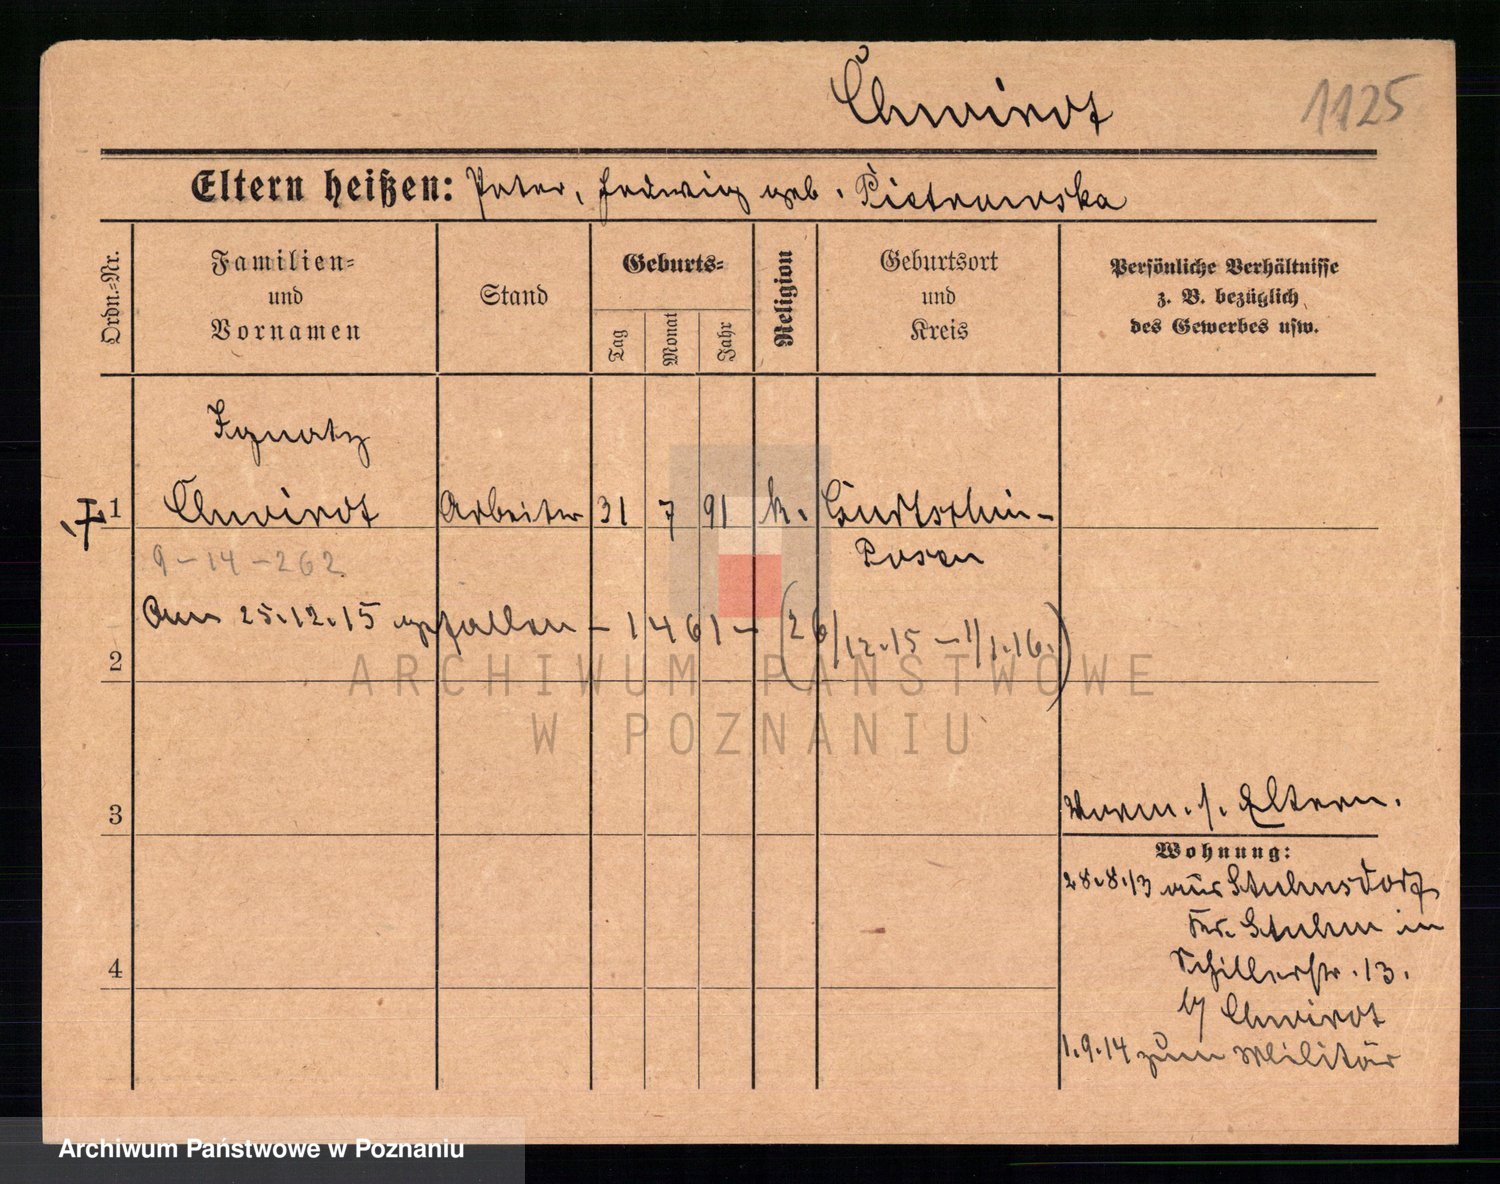 Chwirot
1125
Eltern heißen: Peter, Hedwig geb. Pietrowska
Ordn.-Nr.
Familien-
und
Vornamen
Stand
Geburts-
Tag
Monat
Jahr
Religion
Geburtsort
und
Kreis
Persönliche Verhältnisse
z. B. bezüglich
des Gewerbes usw.
Ignatz
1 Chwirot Arbeiter 31 7 91 k. Gurtschin-
Posen
9-14-262
Am 25.12.15 gefallen - 1461 - (26/12.15 - 1/1.16.)
2
ARCHIWUM PAŃSTWOWE
W POZNANIU
3
Verm. s. Eltern.
Wohnung:
28.8.13 aus Stuhmsdorf
Kr. Stuhm in
Schillerstr. 13.
b/ Chwirot
4
1.9.14 zum Militär
Archiwum Państwowe w Poznaniu